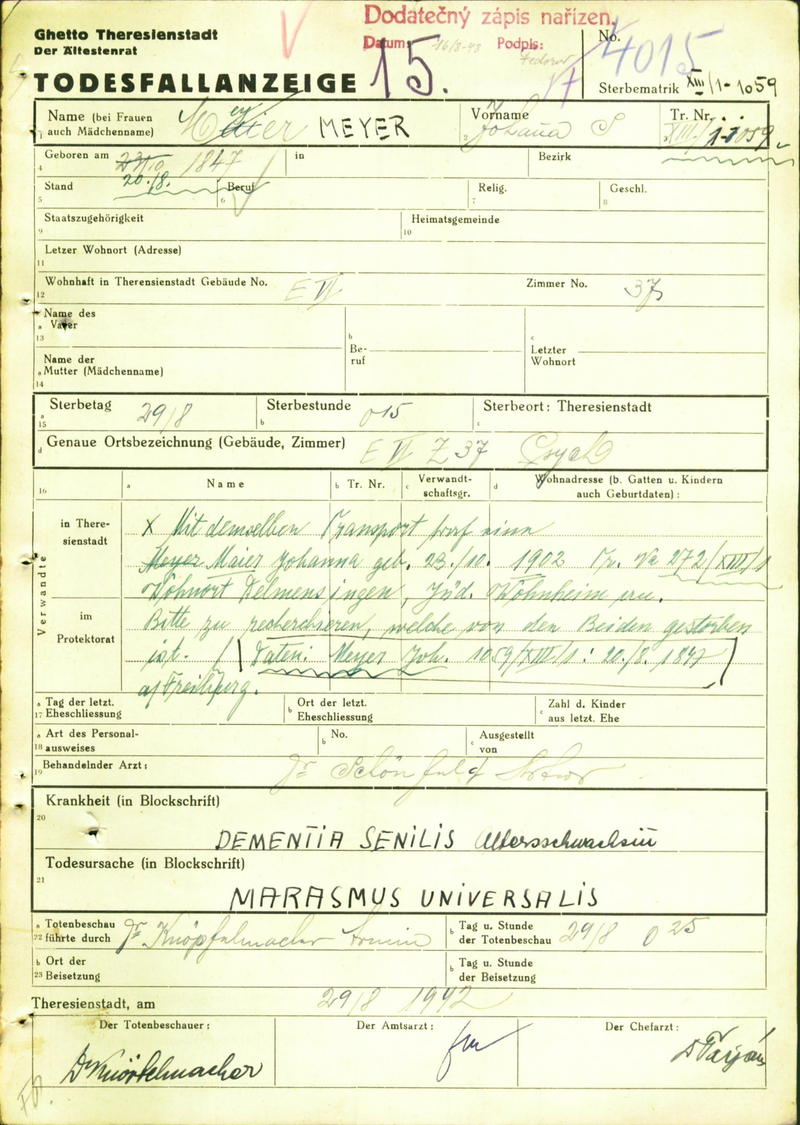 Dodatečný zápis nařízen.
Datum: 16/8-43 Podpis:
Ghetto Theresienstadt
Der Ältestenrat
No. 4015
TODESFALLANZEIGE 15.
Sterbematrik XIII/1-1059
Name (bei Frauen auch Mädchenname) MEYER
Vorname Johanna S
Tr. Nr. XIII/1-1059
Geboren am 23/10 20./8. 1847 in Bezirk
Stand Beruf Relig. Geschl.
Staatszugehörigkeit Heimatsgemeinde
Letzer Wohnort (Adresse)
Wohnhaft in Theresienstadt Gebäude No. E VI Zimmer No. 37
Name des Vater
Beruf
Letzter Wohnort
Name der Mutter (Mädchenname)
Sterbetag 29/8 Sterbestunde 015 Sterbeort: Theresienstadt
Genaue Ortsbezeichnung (Gebäude, Zimmer) E VI Z 37
Name Tr. Nr. Verwandtschaftsgr. Wohnadresse (b. Gatten u. Kindern auch Geburtdaten):
Verwandte
in Theresienstadt
im Protektorat
X Mit demselben Transport traf eine
Meyer Maier Johanna geb. 23./10. 1902 Tr. No 272/XIII/1
Wohnort Delmensingen, Jüd. Wohnheim ein.
Bitte zu recherchieren, welche von den Beiden gestorben
ist. (Daten: Meyer Joh. 1059/XIII/1: 20./8. 1847)
a/Freiburg.
Tag der letzt. Eheschliessung
Ort der letzt. Eheschliessung
Zahl d. Kinder aus letzt. Ehe
Art des Personalausweises
No.
Ausgestellt von
Behandelnder Arzt: Dr Schönfeld
Krankheit (in Blockschrift)
DEMENTIA SENILIS Altersschwachsin
Todesursache (in Blockschrift)
MARASMUS UNIVERSALIS
Totenbeschau führte durch Dr Knöpfelmacher Armin
Tag u. Stunde der Totenbeschau 29/8 0 25
Ort der Beisetzung
Tag u. Stunde der Beisetzung
Theresienstadt, am 29/8 1942
Der Totenbeschauer: Der Amtsarzt: Der Chefarzt:
Dr Knöpfelmacher